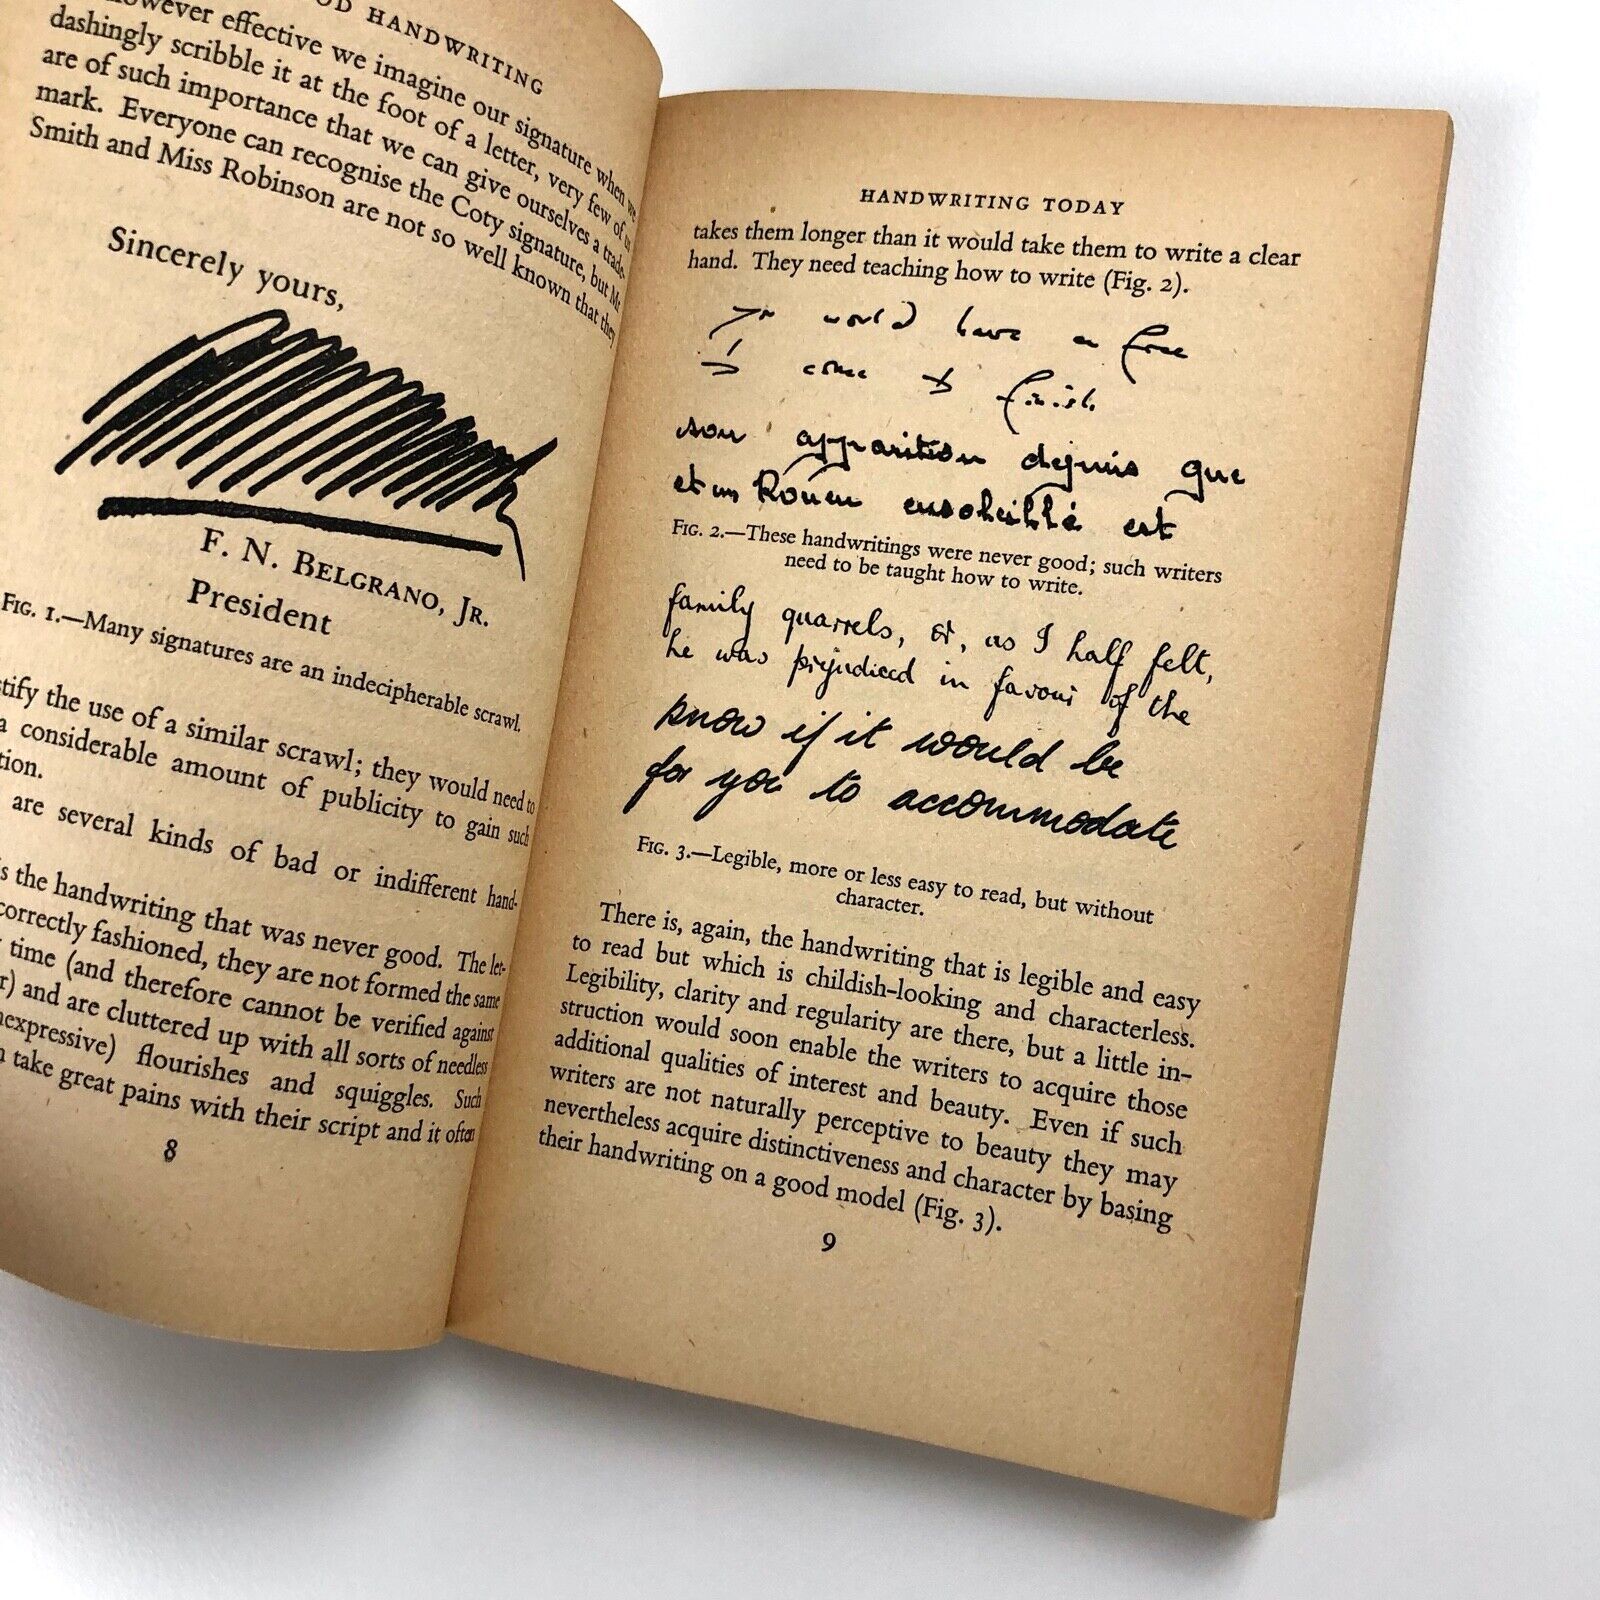 OD HANDWRITING
however effective we imagine our signature when we
dashingly scribble it at the foot of a letter, very few of us
are of such importance that we can give ourselves a trade-
mark. Everyone can recognise the Coty signature, but Mr
Smith and Miss Robinson are not so well known that they
Sincerely yours,
F. N. BELGRANO, JR.
President
FIG. 1.—Many signatures are an indecipherable scrawl.
stify the use of a similar scrawl; they would need to
a considerable amount of publicity to gain such
tion.
are several kinds of bad or indifferent hand-
is the handwriting that was never good. The let-
correctly fashioned, they are not formed the same
time (and therefore cannot be verified against
r) and are cluttered up with all sorts of needless
nexpressive) flourishes and squiggles. Such
take great pains with their script and it often
8
HANDWRITING TODAY
takes them longer than it would take them to write a clear
hand. They need teaching how to write (Fig. 2).
would have
come finish
son apparition depuis que
Rouen ensoleillé est
FIG. 2.—These handwritings were never good; such writers
need to be taught how to write.
family quarrels, or, as I half felt,
he was prejudiced in favour of the
know if it would be
for you to accommodate
FIG. 3.—Legible, more or less easy to read, but without
character.
There is, again, the handwriting that is legible and easy
to read but which is childish-looking and characterless.
Legibility, clarity and regularity are there, but a little in-
struction would soon enable the writers to acquire those
additional qualities of interest and beauty. Even if such
writers are not naturally perceptive to beauty they may
nevertheless acquire distinctiveness and character by basing
their handwriting on a good model (Fig. 3).
9